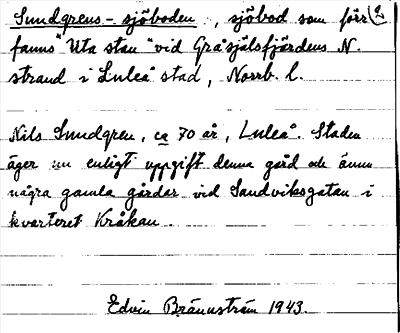 Sundgrens-sjöboden, sjöbod som förr 2
fanns "Uta stan" vid Gråsjälsfjärdens N.
strand i Luleå stad, Norrb. l.
Nils Sundgren, ca 70 år, Luleå. Staden
äger nu enligt uppgift denna gård och ännu
några gamla gårdar vid Sandviksgatan i
kvarteret Kråkan.
Edvin Brännström 1943.